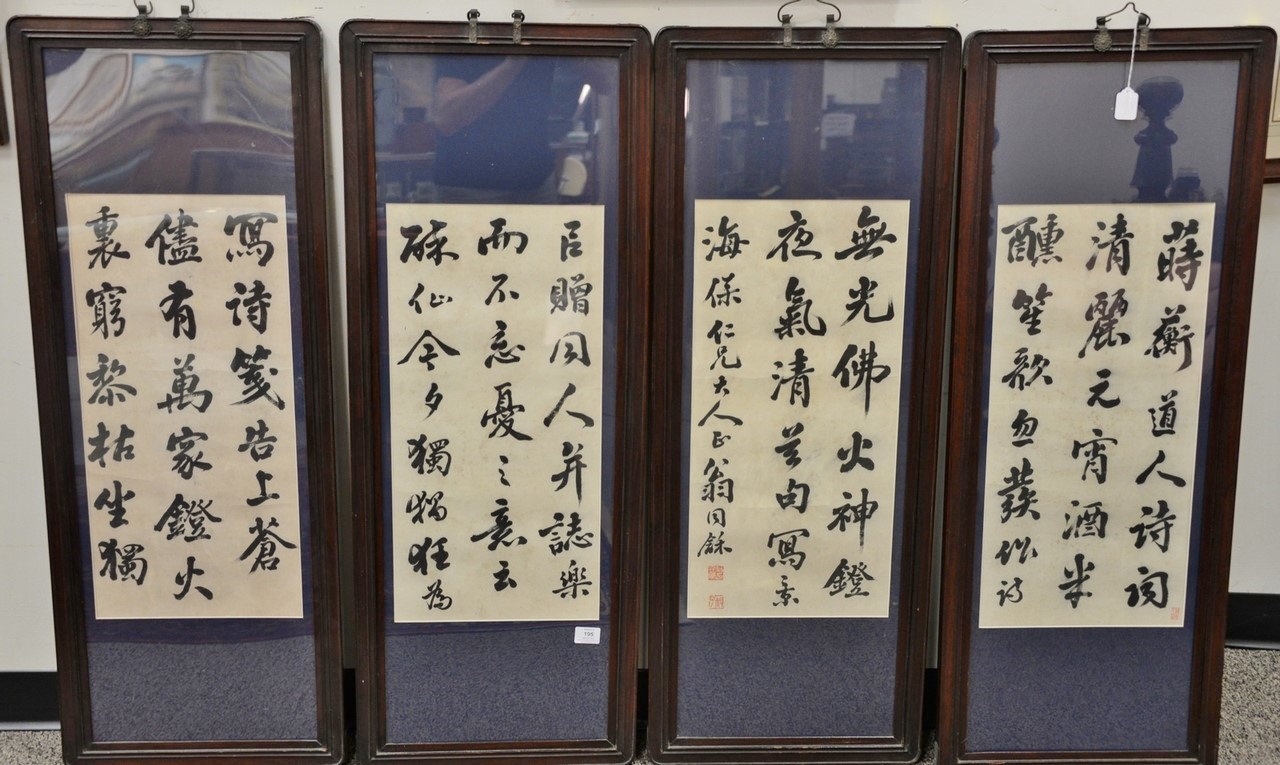 蒔蘅道人诗词
清麗元宵酒半
醺笙歌忽發作诗
臣贈同人并誌樂
而不忘憂之意云
酥仙今夕獨猖狂為
寫詩箋告上蒼
儘有萬家鐙火
裏窮黎枯坐獨
無光佛火神鐙
夜氣清寫
海保仁兄大人正翁同龢